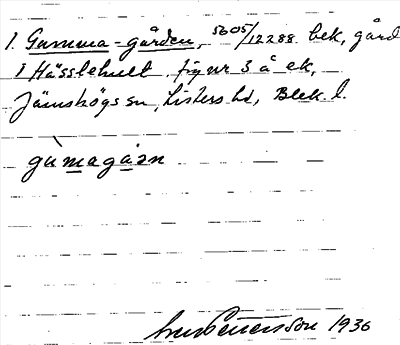 1. Gumma-gården, 5605/12288 bek, gård
i Hässlehult, fig nr 3 å ek,
Jämshögs sn, Listers hd, Blek. l.
gùmagåɜn
Pettersson 1936